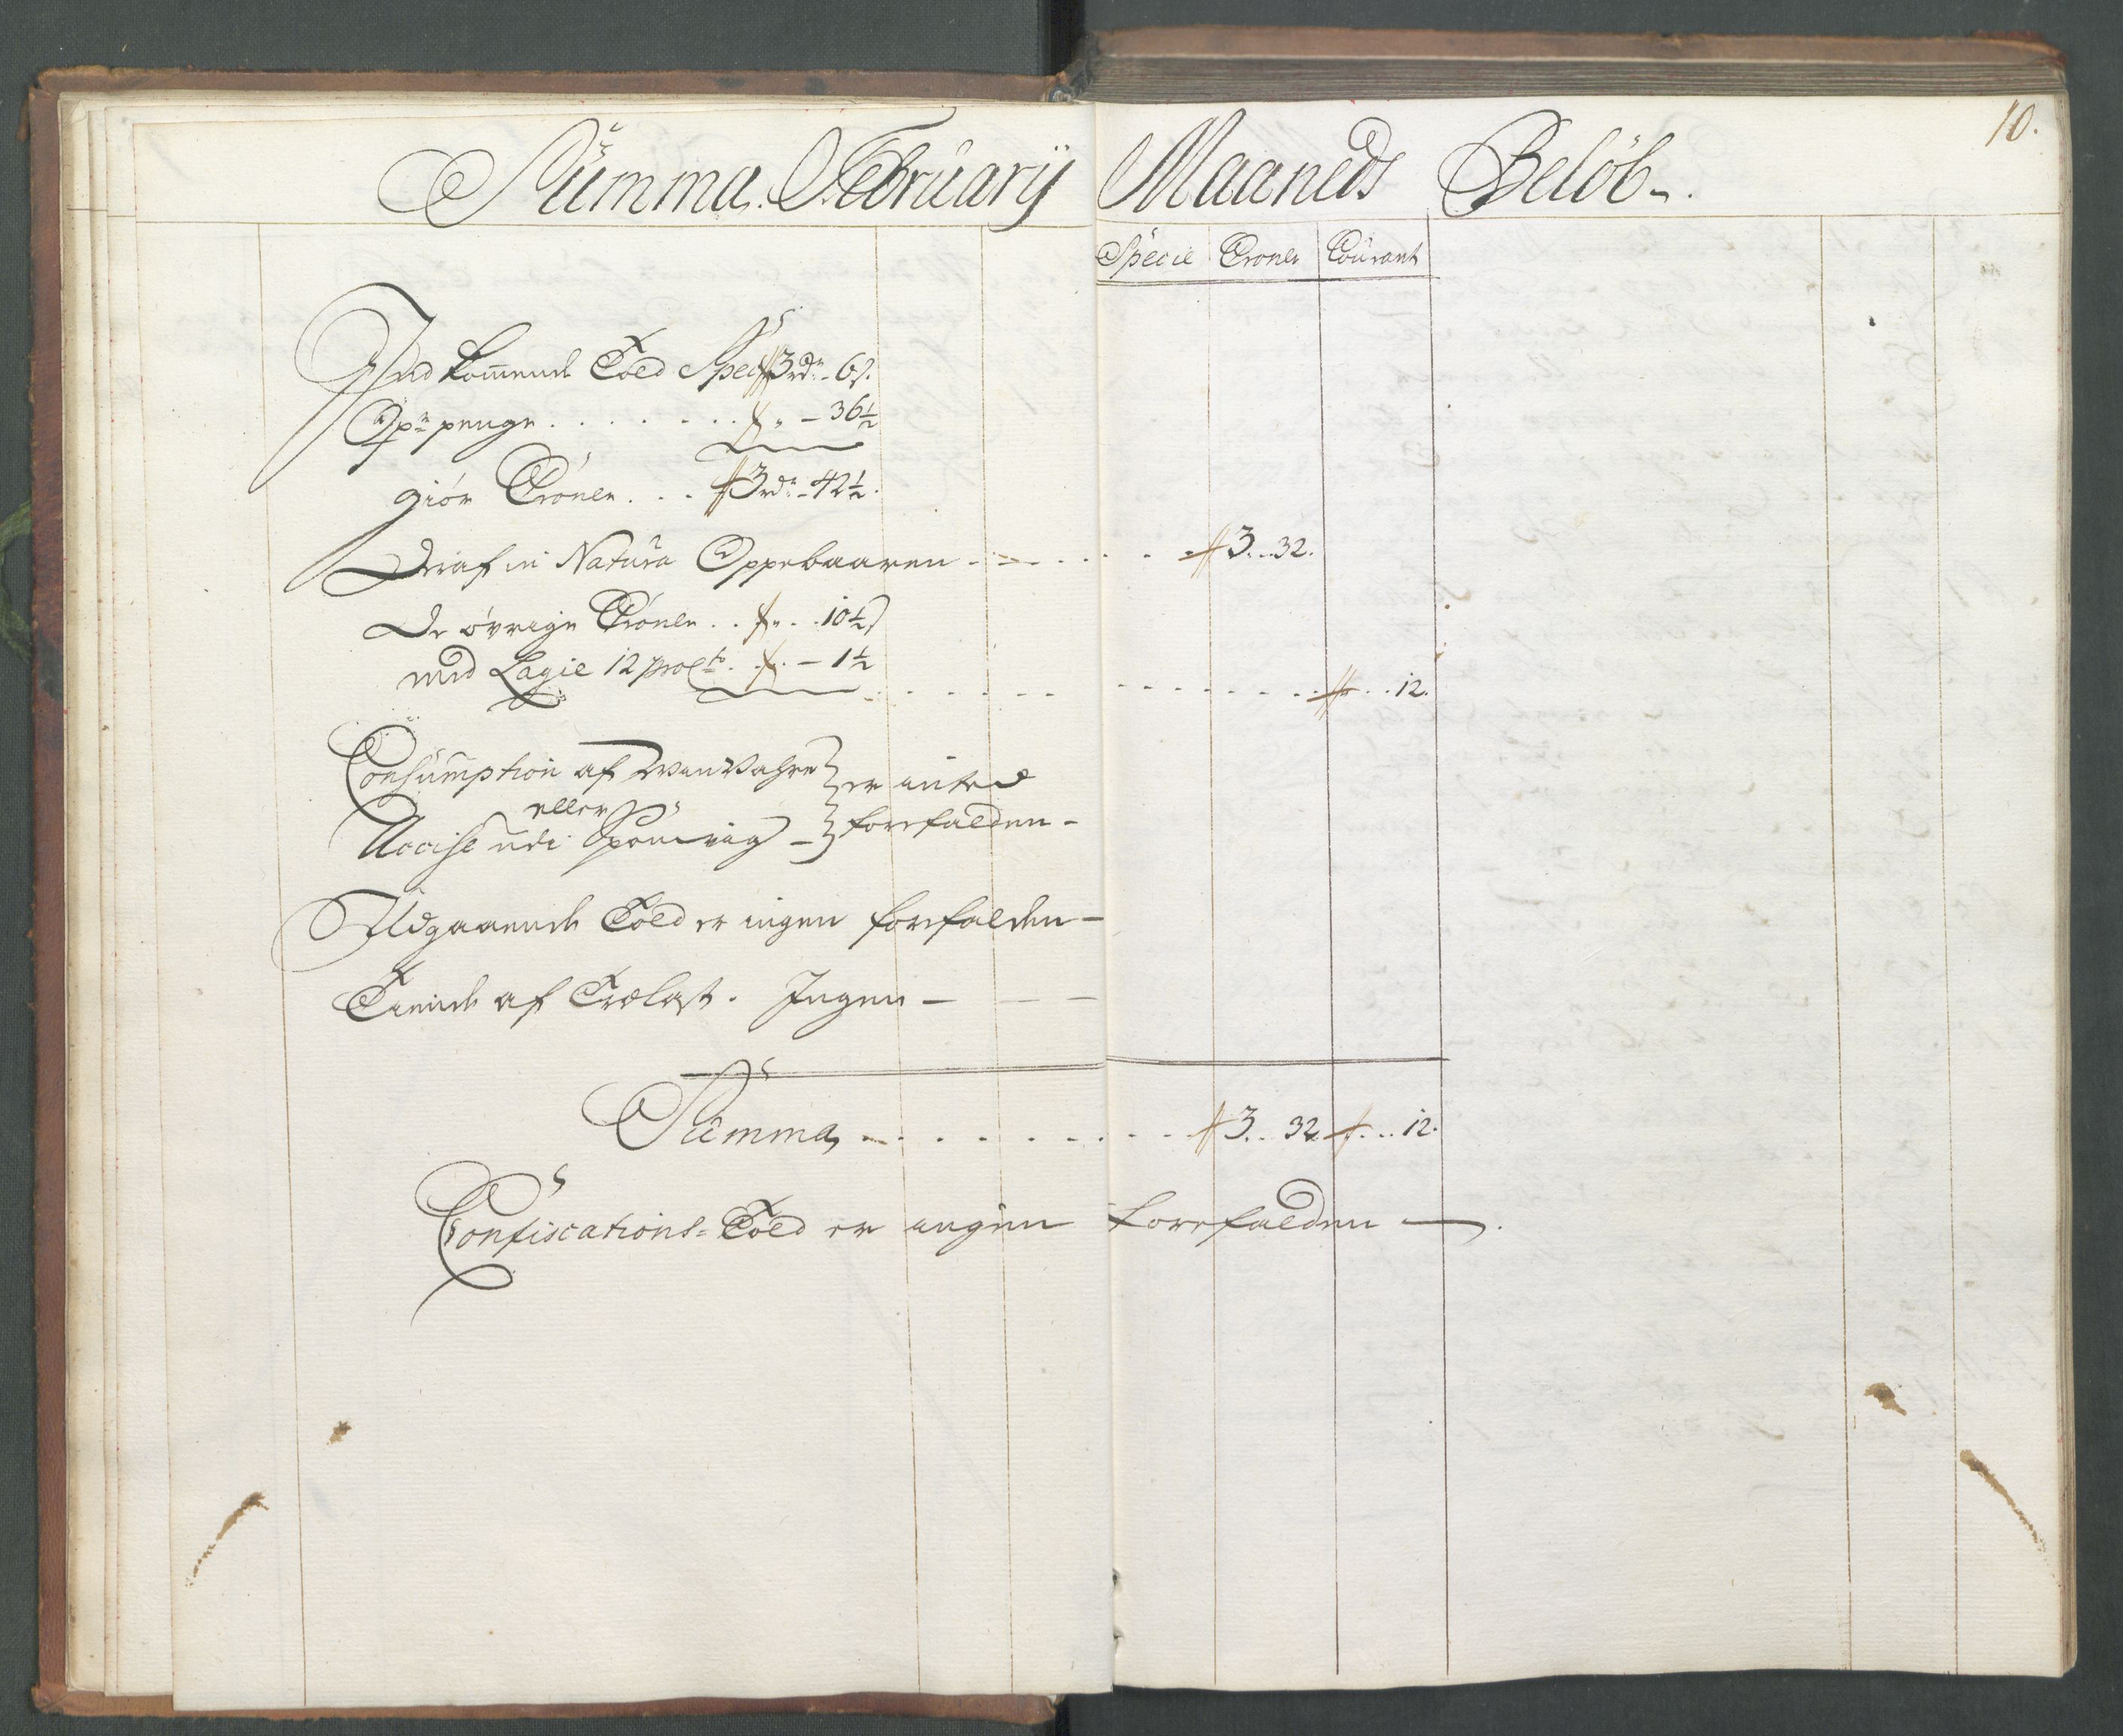 10.
Summa Februarij Maaneds Beløb.
Specie Croner Courant
Indkommende Told Spec 3rdr - 6s.
Op penge . . . . . . . " - 36½
giør Croner . . . 3rdr - 42½.
Deraf in Natura Oppebaaren - - - . . . . 3 .. 32.
De øvrige Croner . . " . . 10½s
med Lagie 12 proCto . . - 1½
. . . . . . . . . . . . . . 12.
Consumption af Vahre } er intet
eller
Accise udi - } forefalden -
Udgaaende Told er ingen forefalden -
Tiende af Trælast. Ingen - - -
Summa - . . . . . . . . 3 .. 32 . . .. 12.
Confiscations-Told er ingen forefalden — .